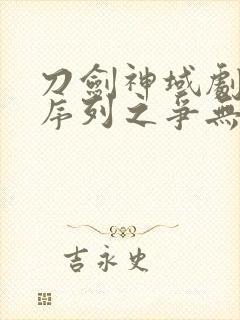 刀劍神域劇
序列之爭無
吉永史